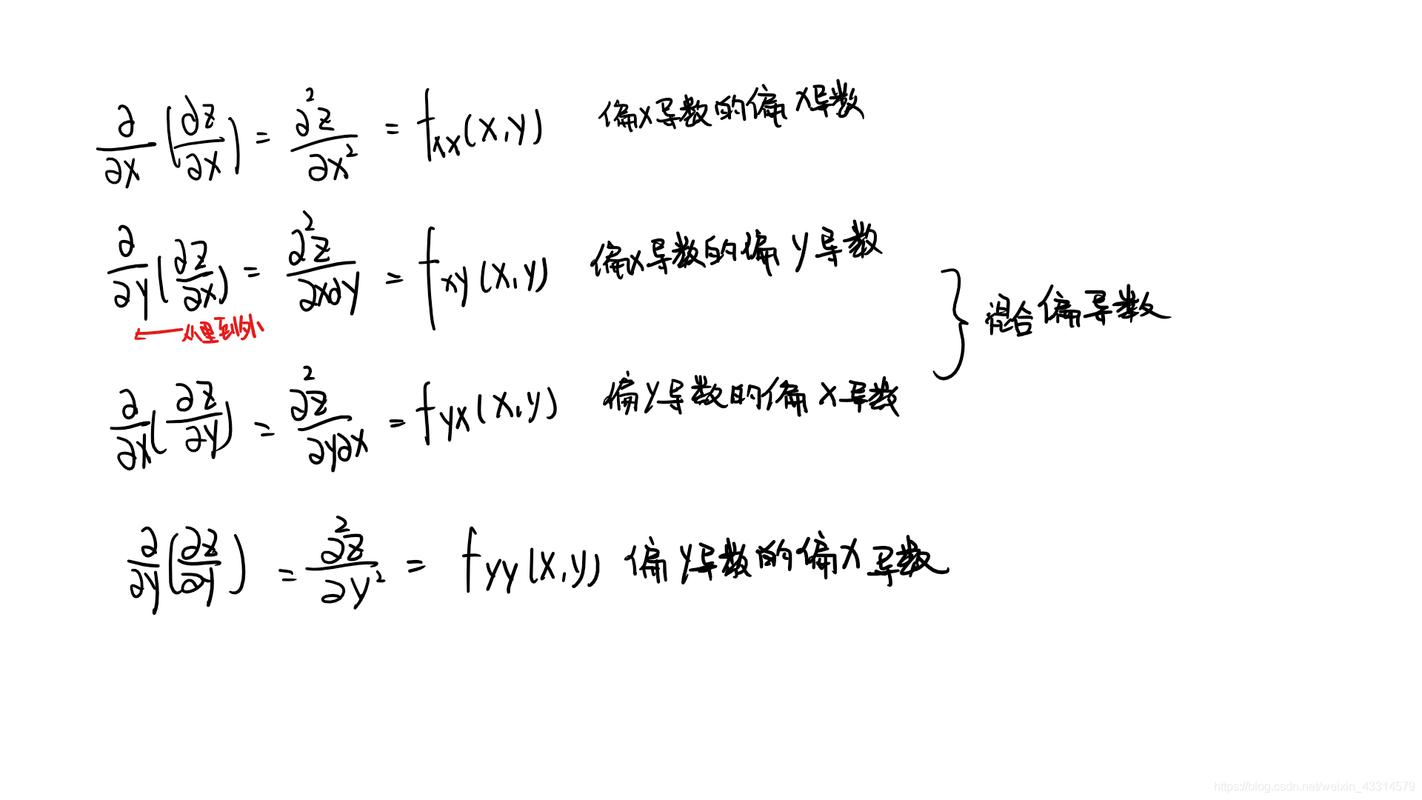 ∂/∂x (∂z/∂x) = ∂²z/∂x² = fxx(x,y) 偏x导数的偏x导数
∂/∂y (∂z/∂x) = ∂²z/∂x∂y = fxy(x,y) 偏x导数的偏y导数
←从里到外
} 混合偏导数
∂/∂x (∂z/∂y) = ∂²z/∂y∂x = fyx(x,y) 偏y导数的偏x导数
∂/∂y (∂z/∂y) = ∂²z/∂y² = fyy(x,y) 偏y导数的偏x导数
https://blog.csdn.net/weixin_43314579